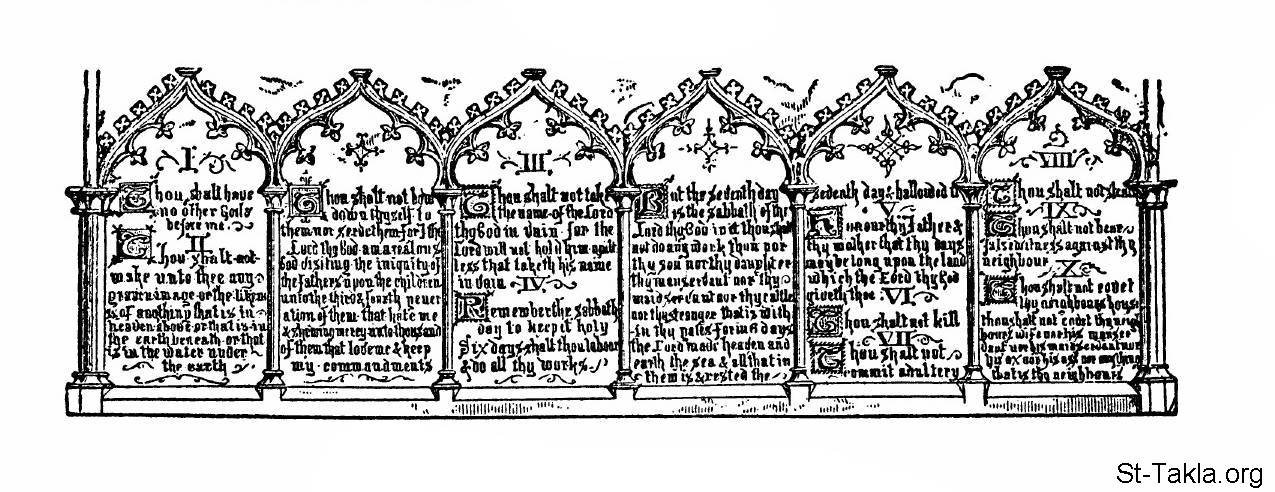 I
Thou shall have
no other Gods
before me.
II
Thou shalt not
make unto thee any
graven image or the liken
ss of anything that is in
heaven above or that is in
the earth beneath or that
is in the water under
the earth
Thou shalt not bow
down thyself to
them nor serve them for I the
Lord thy God am a jealous
God visiting the iniquity of
the fathers upon the children
unto the third & fourth gener
ation of them that hate me
& shewing mercy unto thousand
of them that love me & keep
my commandments
III
Thou shalt not take
the name of the Lord
thy God in vain for the
Lord will not hold him guilt
less that taketh his name
in vain IV
Remember the sabbath
day to keep it holy
Six days shalt thou labour
& do all thy works
But the seventh day
is the sabbath of the
Lord thy God in it thou shalt
not do any work thou nor
thy son nor thy daughter
thy manservant nor thy
maidservant nor thy cattle
nor thy stranger that is with
in thy gates for in 6 days
the Lord made heaven and
earth the sea & all that in
them is & rested the
seventh day & hallowed it
V
Honour thy father &
thy mother that thy days
may be long upon the land
which the Lord thy God
giveth thee VI
Thou shalt not kill
VII
Thou shalt not
commit adultery
VIII
Thou shalt not steal
IX
Thou shalt not bear
false witness against thy
neighbour X
Thou shalt not covet
thy neighbours house
thou shalt not covet thy neigh
bours wife nor his manser
vant nor his maidservant nor
his ox nor his ass nor anything
that is thy neighbours
St-Takla.org